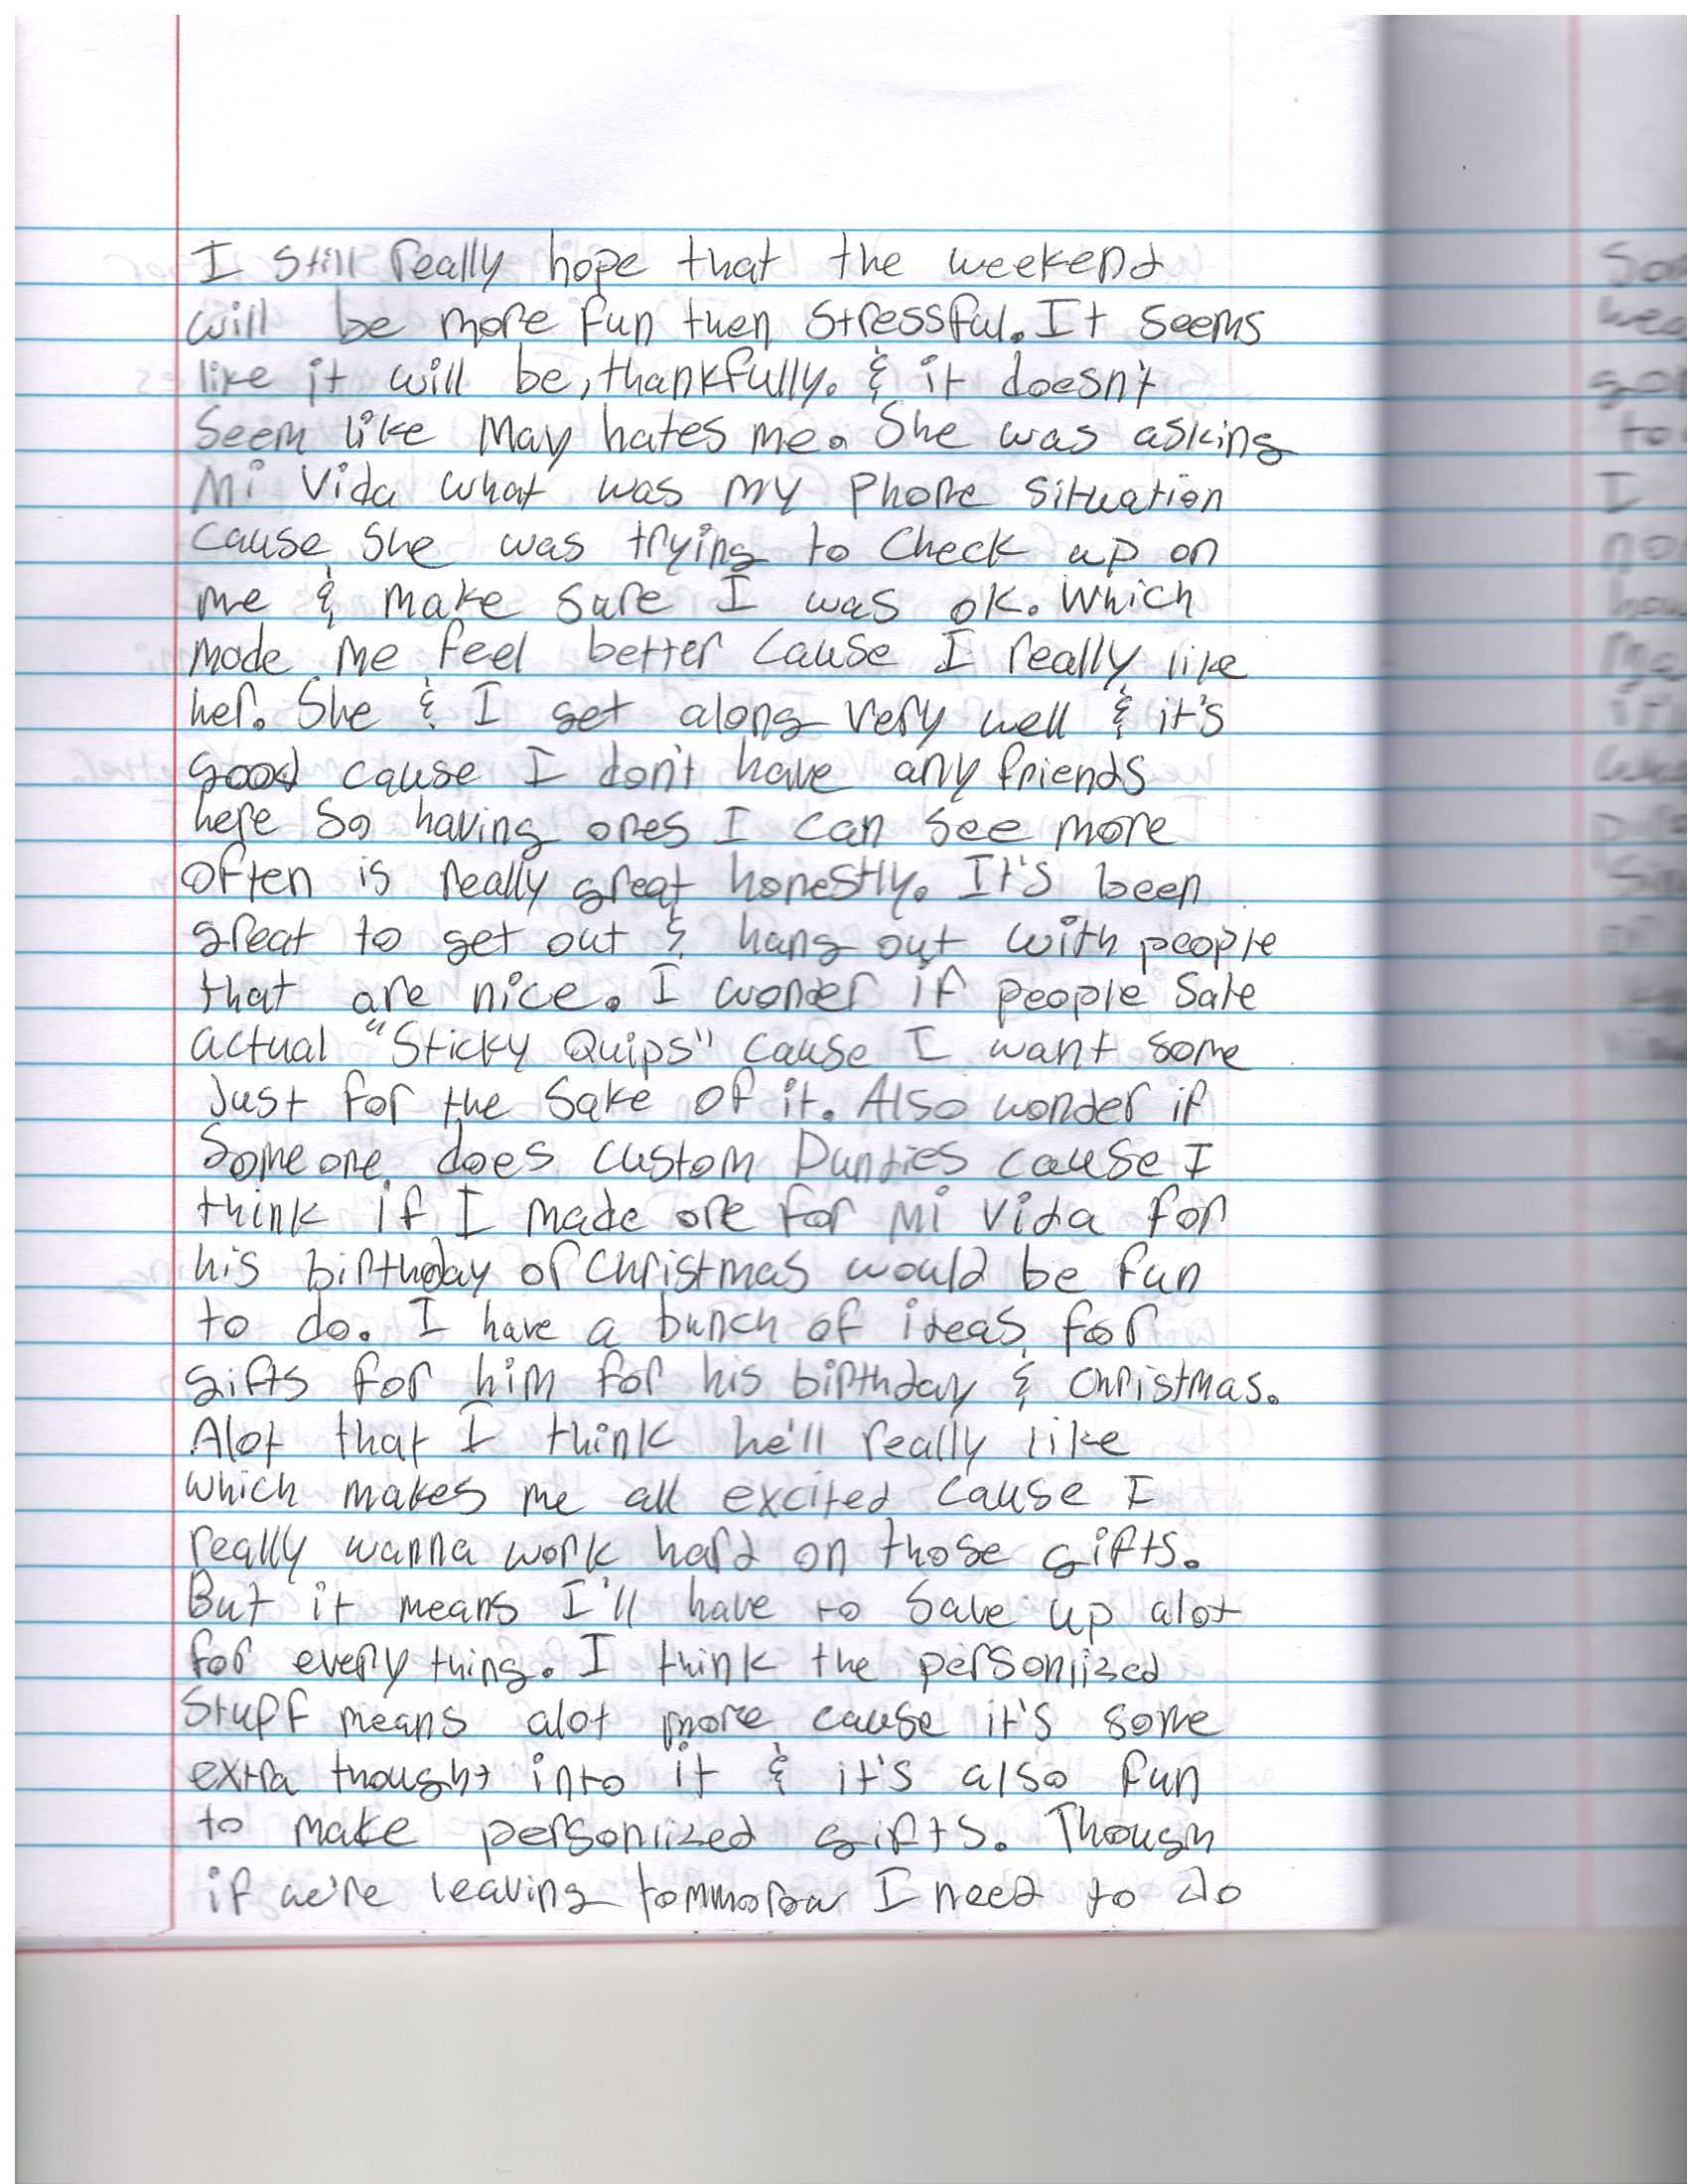 I still really hope that the weekend
will be more fun then stressful. It seems
like it will be, thankfully. & it doesn't
seem like May hates me. She was asking
Mi Vida what was my phone situation
cause she was trying to check up on
me & make sure I was ok. Which
made me feel better cause I really like
her. She & I get along very well & it's
good cause I don't have any friends
here so having ones I can see more
often is really great honestly. It's been
great to get out & hang out with people
that are nice. I wonder if people sale
actual "Sticky Quips" cause I want some
just for the sake of it. Also wonder if
someone does custom Dunnies cause I
think if I made one for Mi Vida for
his birthday or Christmas would be fun
to do. I have a bunch of ideas for
gifts for him for his birthday & Christmas.
Alot that I think he'll really like
which makes me all excited cause I
really wanna work hard on those gifts.
But it means I'll have to save up alot
for every thing. I think the personlized
stuff means alot more cause it's some
extra thought into it & it's also fun
to make personlized gifts. Though
if we're leaving tommorow I need to do